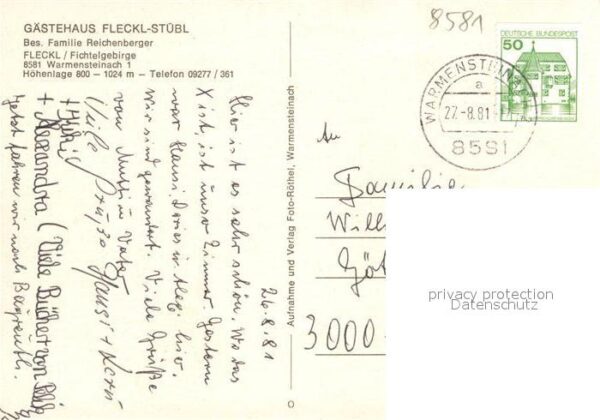 8581
GÄSTEHAUS FLECKL-STÜBL
Bes. Familie Reichenberger
FLECKL / Fichtelgebirge
8581 Warmensteinach 1
Höhenlage 800 – 1024 m – Telefon 09277 / 361
DEUTSCHE BUNDESPOST
50
WARMENSTEIN
a
27.-8.81
8581
Aufnahme und Verlag Foto-Röthel, Warmensteinach
26.8.81
Hier ist es sehr schön. Wo das
X ist, ist unser Zimmer. Gestern
war Hansi
hier.
Wir sind gewandert. Viele Grüße
von Mutti u. Vater
Viele Grüße Hansi +
+
+ Alexandra (Viele Bücher von
Jetzt fahren wir nach Bayreuth.
An
Familie
Will
Göt
3000
privacy protection
Datenschutz